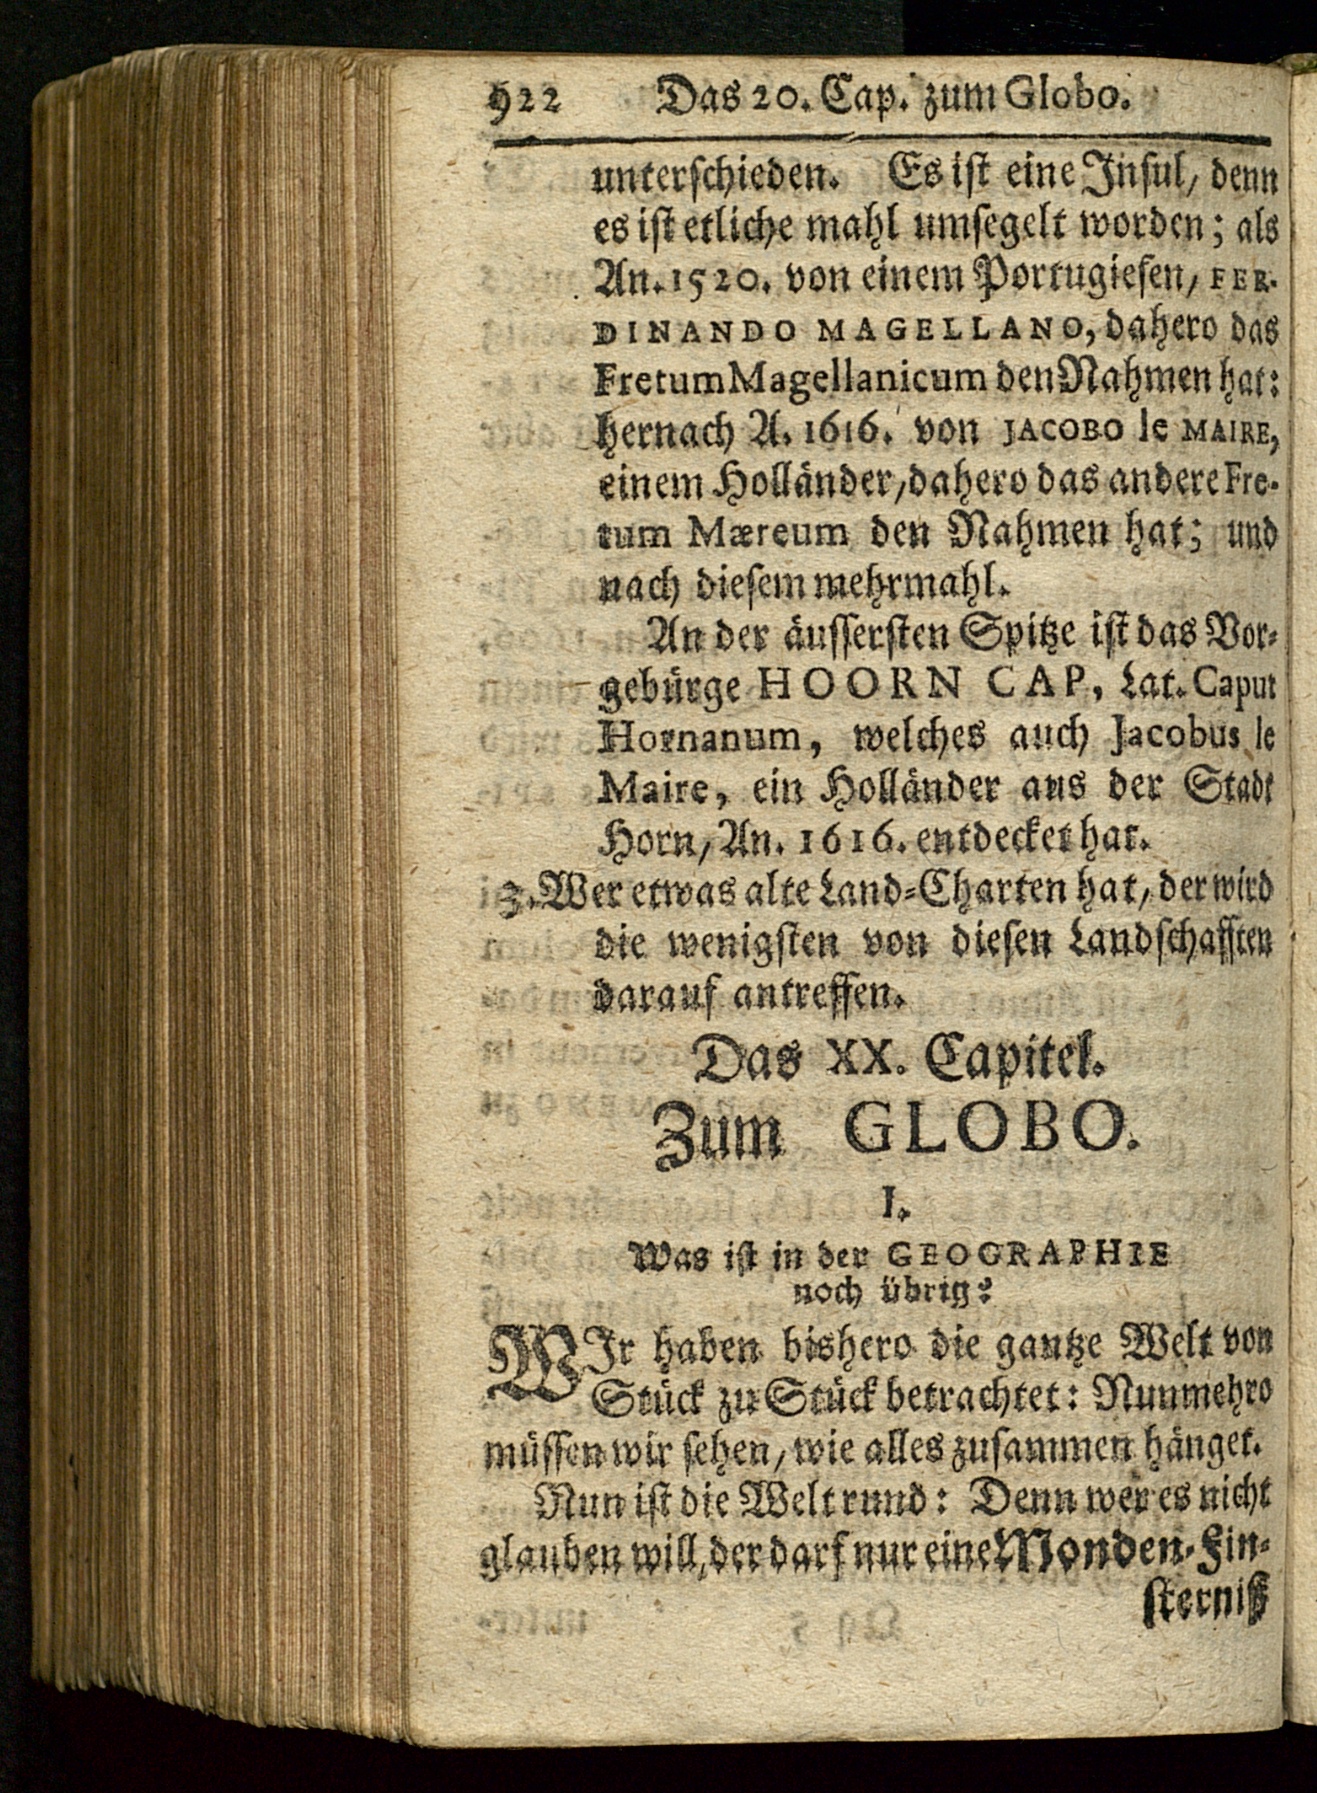 922 Das 20. Cap. zum Globo.
unterschieden. Es ist eine Insul, denn
es ist etliche mahl umsegelt worden; als
An. 1520. von einem Portugiesen, FER-
DINANDO MAGELLANO, dahero das
Fretum Magellanicum den Nahmen hat:
hernach A. 1616. von JACOBO le MAIRE,
einem Holländer, dahero das andere Fre-
tum Mæreum den Nahmen hat; und
nach diesem mehrmahl.
An der äussersten Spitze ist das Vor-
gebürge HOORN CAP, Lat. Caput
Hornanum, welches auch Jacobus le
Maire, ein Holländer aus der Stadt
Horn, An. 1616. entdecket hat.
3. Wer etwas alte Land-Charten hat, der wird
die wenigsten von diesen Landschafften
darauf antreffen.
Das XX. Capitel.
Zum GLOBO.
I.
Was ist in der GEOGRAPHIE
noch übrig?
WIr haben bishero die gantze Welt von
Stück zu Stück betrachtet: Nunmehro
müssen wir sehen, wie alles zusammen hänget.
Nun ist die Welt rund: Denn wer es nicht
glauben will, der darf nur eine Monden-Fin-
sterniß